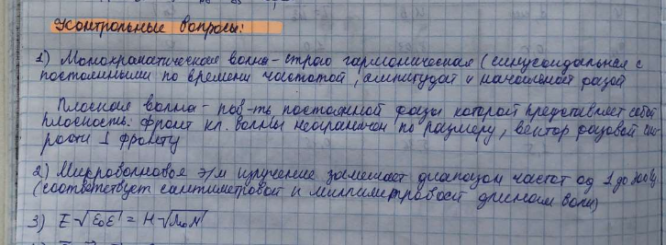 Контрольные вопросы:
1) Монохроматическая волна - строго гармоническая (синусоидальная с
постоянными по времени частотой, амплитудой и начальной фазой
Плоская волна - пов-ть постоянной фазы которой представляет собой
плоскость. фронт пл. волны неограничен по размеру, вектор фазовой ско
рости ⊥ фронту
2) Микроволновое э/м излучение занимает диапазон частот од 1 до
(соответствует сантиметровой и миллиметровой длинам волн)
3) E √ε₀ε = H √μ₀μ